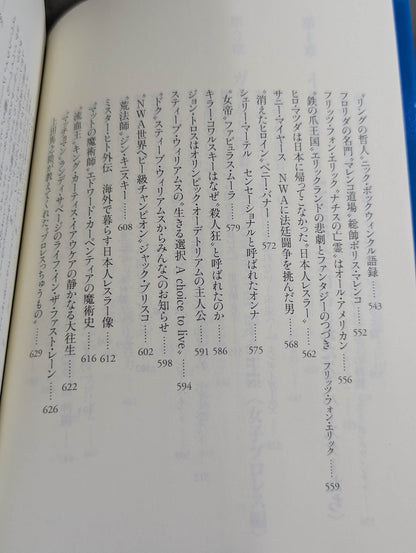 “リングの哲人”ニック・ボックウィンクル語録……543
フロリダの名門“マレンコ道場”総帥ボリス・マレンコ……552
フリッツ・フォン・エリック “ナチスの亡霊”はオール・アメリカン……556
“鉄の爪王国”エリックランドの悲劇とファンタジーのつづき フリッツ・フォン・エリック……559
ヒロ・マツダは日本に帰ってこなかった“日本人レスラー”……562
サニー・マイヤース NWAに法廷闘争を挑んだ男……568
“消えたヒロイン”ペニー・バナー……572
シェリー・マーテル センセーショナルと呼ばれたオンナ……575
“女帝”ファビュラス・ムーラ……579
キラー・コワルスキーはなぜ“殺人狂”と呼ばれたのか……586
ジョン・トロスはオリンピック・オーデトリアムの主人公……591
スティーブ・ウィリアムスの“生きる選択 A choice to live”……594
“ドク”スティーブ・ウィリアムスからみんなへのお知らせ……598
NWA世界ヘビー級チャンピオン ジャック・ブリスコ……602
“荒法師”ジン・キニスキー……608
ミスター・ヒト外伝 海外で暮らす日本人レスラー像……612
“マットの魔術師”エドワード・カーペンティアの魔術史……616
“流血王”キング・カーティス・イアウケアの静かなる大往生……622
“マッチョマン”ランディ・サベージのライフ・イン・ザ・ファスト・レーン……626
上田馬之助が教えてくれた“プロレスっちゅうもの”……629